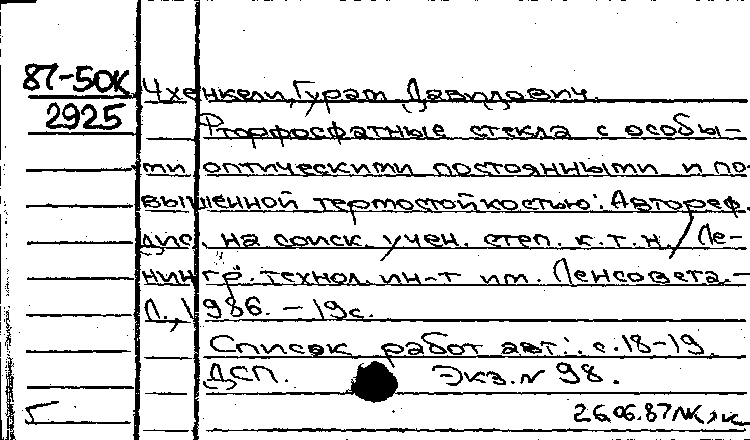 87-50К
2925
Чхенкели, Гурам Давидович.
Фторфосфатные стекла с особы-
ми оптическими постоянными и по
вышенной термостойкостью: Автореф.
дис. на соиск. учен. степ. к.т.н. / Ле-
нингр. технол. ин-т им. Ленсовета.-
Л., 1986. - 19с.
Список работ авт.: с.18-19.
ДСП. Экз. № 98.
26.06.87